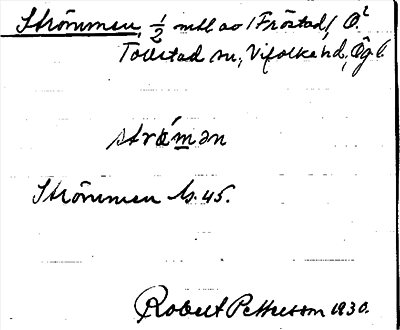 Strömmen, 1/2 mtl av /Fröstad/ Ö.²
Tollstad sn, Vifolka hd, Ög l.
strö́mən
Strömmen Js. 45.
Robert Petterson 1930.